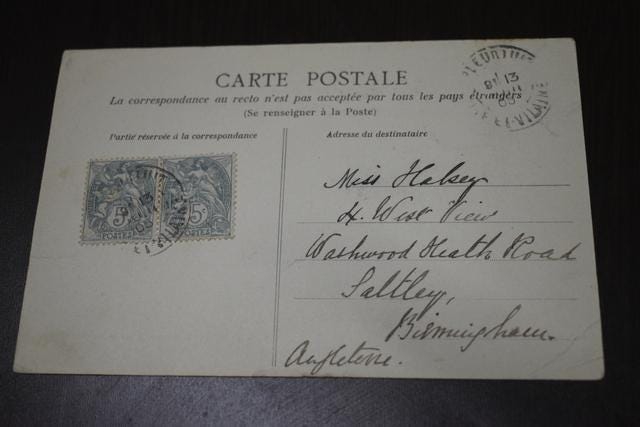 CARTE POSTALE
La correspondance au recto n'est pas acceptée par tous les pays étrangers
(Se renseigner à la Poste)
Partie réservée à la correspondance
Adresse du destinataire
5c
POSTES
5c
POSTES
13
13
ET-VILAINE
Miss Halsey
4. West View
Washwood Heath Road
Saltley,
Birmingham.
Angleterre.